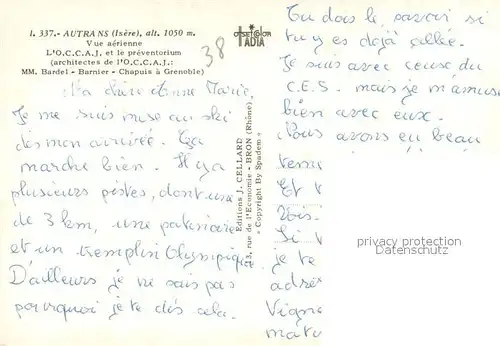 l. 337.- AUTRANS (Isère), alt. 1050 m.
Vue aérienne
L'O.C.C.A.J. et le préventorium
(architectes de l'O.C.C.A.J.:
MM. Bardel - Barnier - Chapuis à Grenoble)
38
IADIA
Ma chère Anne Marie,
Je me suis mise au ski
dès mon arrivée. Ça
marche bien. Il y a
plusieurs pistes, dont une
de 3 km, une patinoire
et un tremplin Olympique.
D'ailleurs je ne sais pas
pourquoi je te dis cela.
Editions J. CELLARD
3, rue de l'Economie - BRON (Rhône)
« Copyright By Spadem »
Tu dois le savoir si
tu y es déjà allée.
Je suis avec ceux du
C.E.S. mais je m'amuse
bien avec eux.
Nous avons eu beau
tem
Et
Vois
Si
je te
adre
Vign
mat
privacy protection
Datenschutz